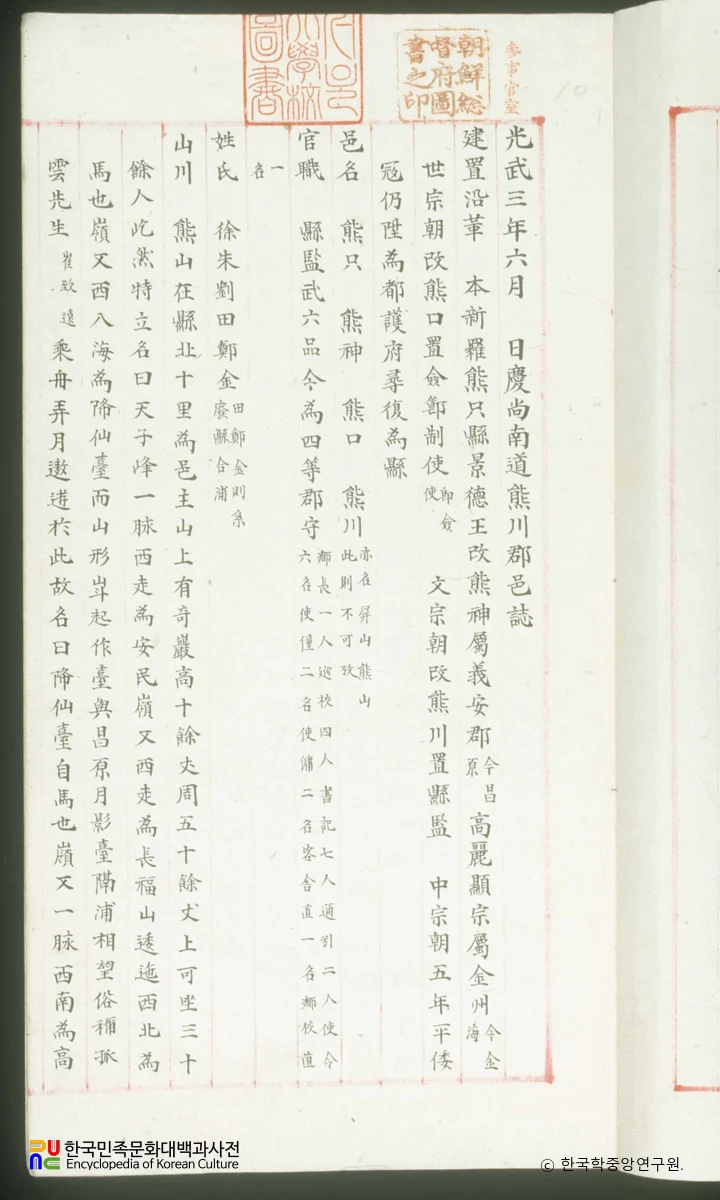 參事官室
朝鮮総
督府圖
書之印
大學校
圖書
光武三年六月 日慶尚南道熊川郡邑誌
建置沿革 本新羅熊只縣景德王改熊神屬義安郡今昌原高麗顯宗屬金州今金海
世宗朝改熊口置僉節制使即僉使 文宗朝改熊川置縣監 中宗朝五年平倭
冦仍陞為都護府尋復為縣
邑名 熊只 熊神 熊口 熊川亦名屏山熊山此則不可攷
官職 縣監武六品今為四等郡守鄕長一人巡校四人書記七人通引二人使令六名使僮二名使傭二名客舍直一名鄕校直
一名
姓氏 徐朱劉田鄭金田鄭金則系廢縣合浦
山川 熊山在縣北十里為邑主山上有奇巖高十餘丈周五十餘丈上可坐三十
餘人屹然特立名曰天子峰一脉西走為安民嶺又西走為長福山逶迤西北為
馬也嶺又西入海為降仙臺而山形斗起作臺與昌原月影臺隔浦相望俗稱孤
雲先生崔致遠乘舟弄月遨遊於此故名曰降仙臺自馬也嶺又一脉西南為高
한국민족문화대백과사전
Encyclopedia of Korean Culture
© 한국학중앙연구원.